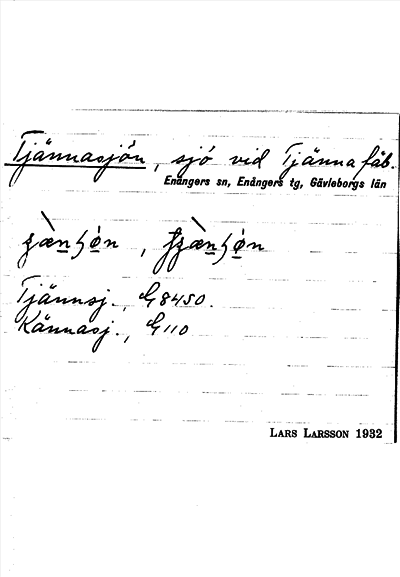 Tjännasjön, sjö vid Tjänna fäb.
Enångers sn, Enångers tg, Gävleborgs län
Tjännsj., G 8450.
Kännasj., G 110
LARS LARSSON 1932